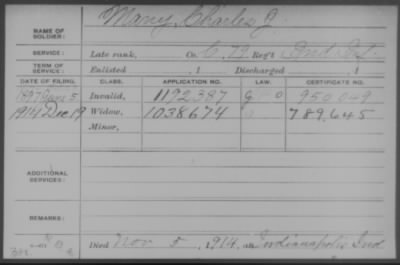 Many, Charles J.
NAME OF SOLDIER:
SERVICE: Late rank, Co. C, 79 Reg't Ind. Inf.
TERM OF SERVICE: Enlisted , 1 Discharged , 1
DATE OF FILING. CLASS. APPLICATION NO. LAW. CERTIFICATE NO.
1897 5 Invalid, 1192387 G 950049
1914 Dec 19 Widow, 1038674 789.645
Minor,
ADDITIONAL SERVICES:
REMARKS:
Died Nov 5, 1914, at Indianapolis Ind